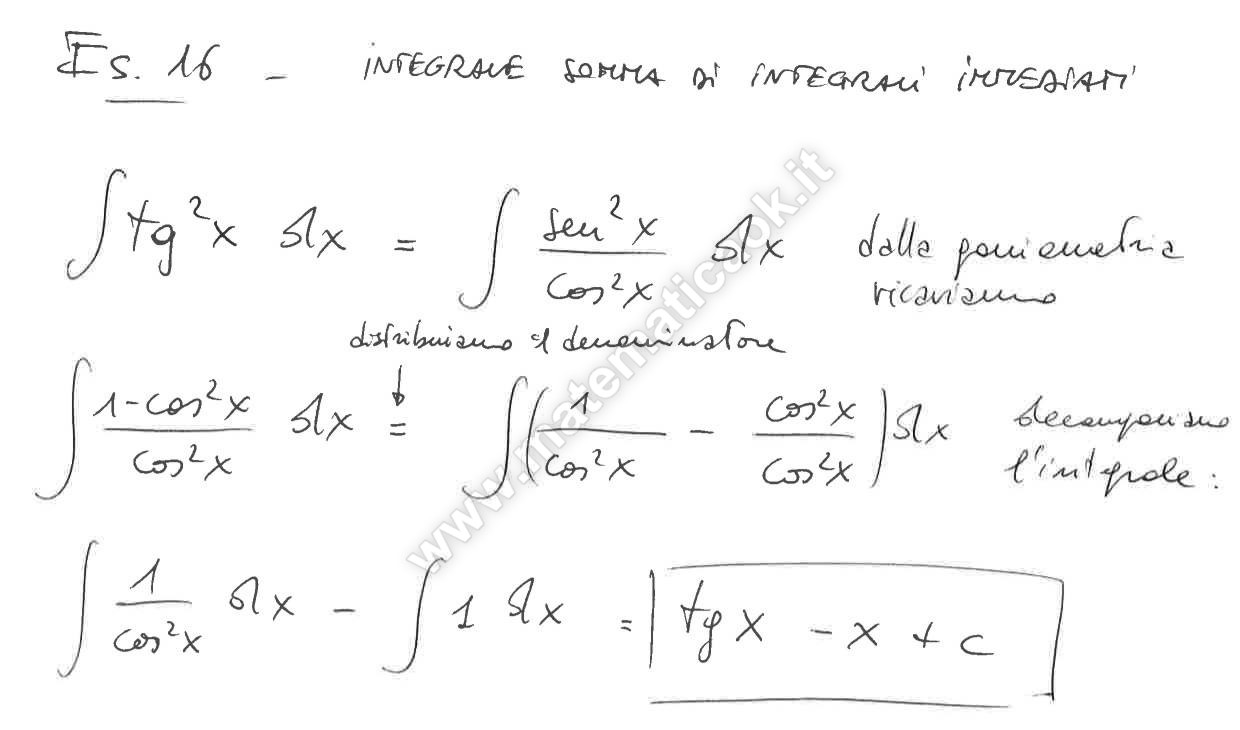 Es. 16 - INTEGRALE SOMMA DI INTEGRALI IMMEDIATI
∫ tg²x dx = ∫ sen²x / cos²x dx dalla goniometria
ricaviamo
distribuiamo il denominatore
↓
∫ (1-cos²x) / cos²x dx = ∫ (1 / cos²x - cos²x / cos²x) dx decomponiamo
l'integrale:
∫ 1 / cos²x dx - ∫ 1 dx = tg x - x + c
www.matematicaok.it